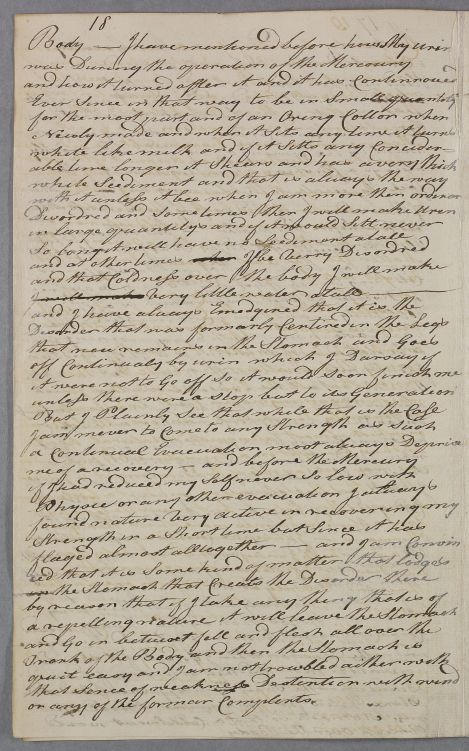 18
Body — I have mentioned before how My urin
was During the operation of the Mercury
and how it turned after it and it has Continnoued
Ever Since in that way to be in Small quantity
for the most part and of an Oring Coller when
Newly made and when it Sits any time it turns
white like milk and if it Sitts any Consider=
able time longer it Shews and has a very thick
white Seediment and that is always the way
with it unless it bee when I am more then ordinar
Disordred and Some times then I will make Uren
in large quantitys and if it would Sitt never
So long it will have no Seediment at all
and at other times if bee very Disordred
and that Coldness over the body I will make
I will make very little water at all
and I have always Emadgined that it is the
Disorder that was formarly Centired in the Legs
that now remains in the Stomach and Goes
off Continualy by urin which I Darsay if
it were not to Go off So it would Soon finish me
unless there were a Stop put to its Generation
But I Plainly See that while that is the Case
I am never to Come to any Strength as Such
a Continual Evacuation most always Deprive
me of a recovery — and before the Mercury
if I had reduced my Self never So low with
Physic or any other evacuation I always
found nature very active in recovering my
Strength in a Short time but Since it has
flaged almost alltogether — and I am Convin
ced that it is Some kind of matter that lodges
in the Stomach that Creats the Disorder there
by reason that if I take any thing that is of
a repelling nature it will leave the Stomach
and Go in betwixt fell and flesh all over the
Trunk of the Body and then the Stomach is
quit easy and I am not troubled aither with
that Sence of weakness Distention with wind
or any of the formar Complents.